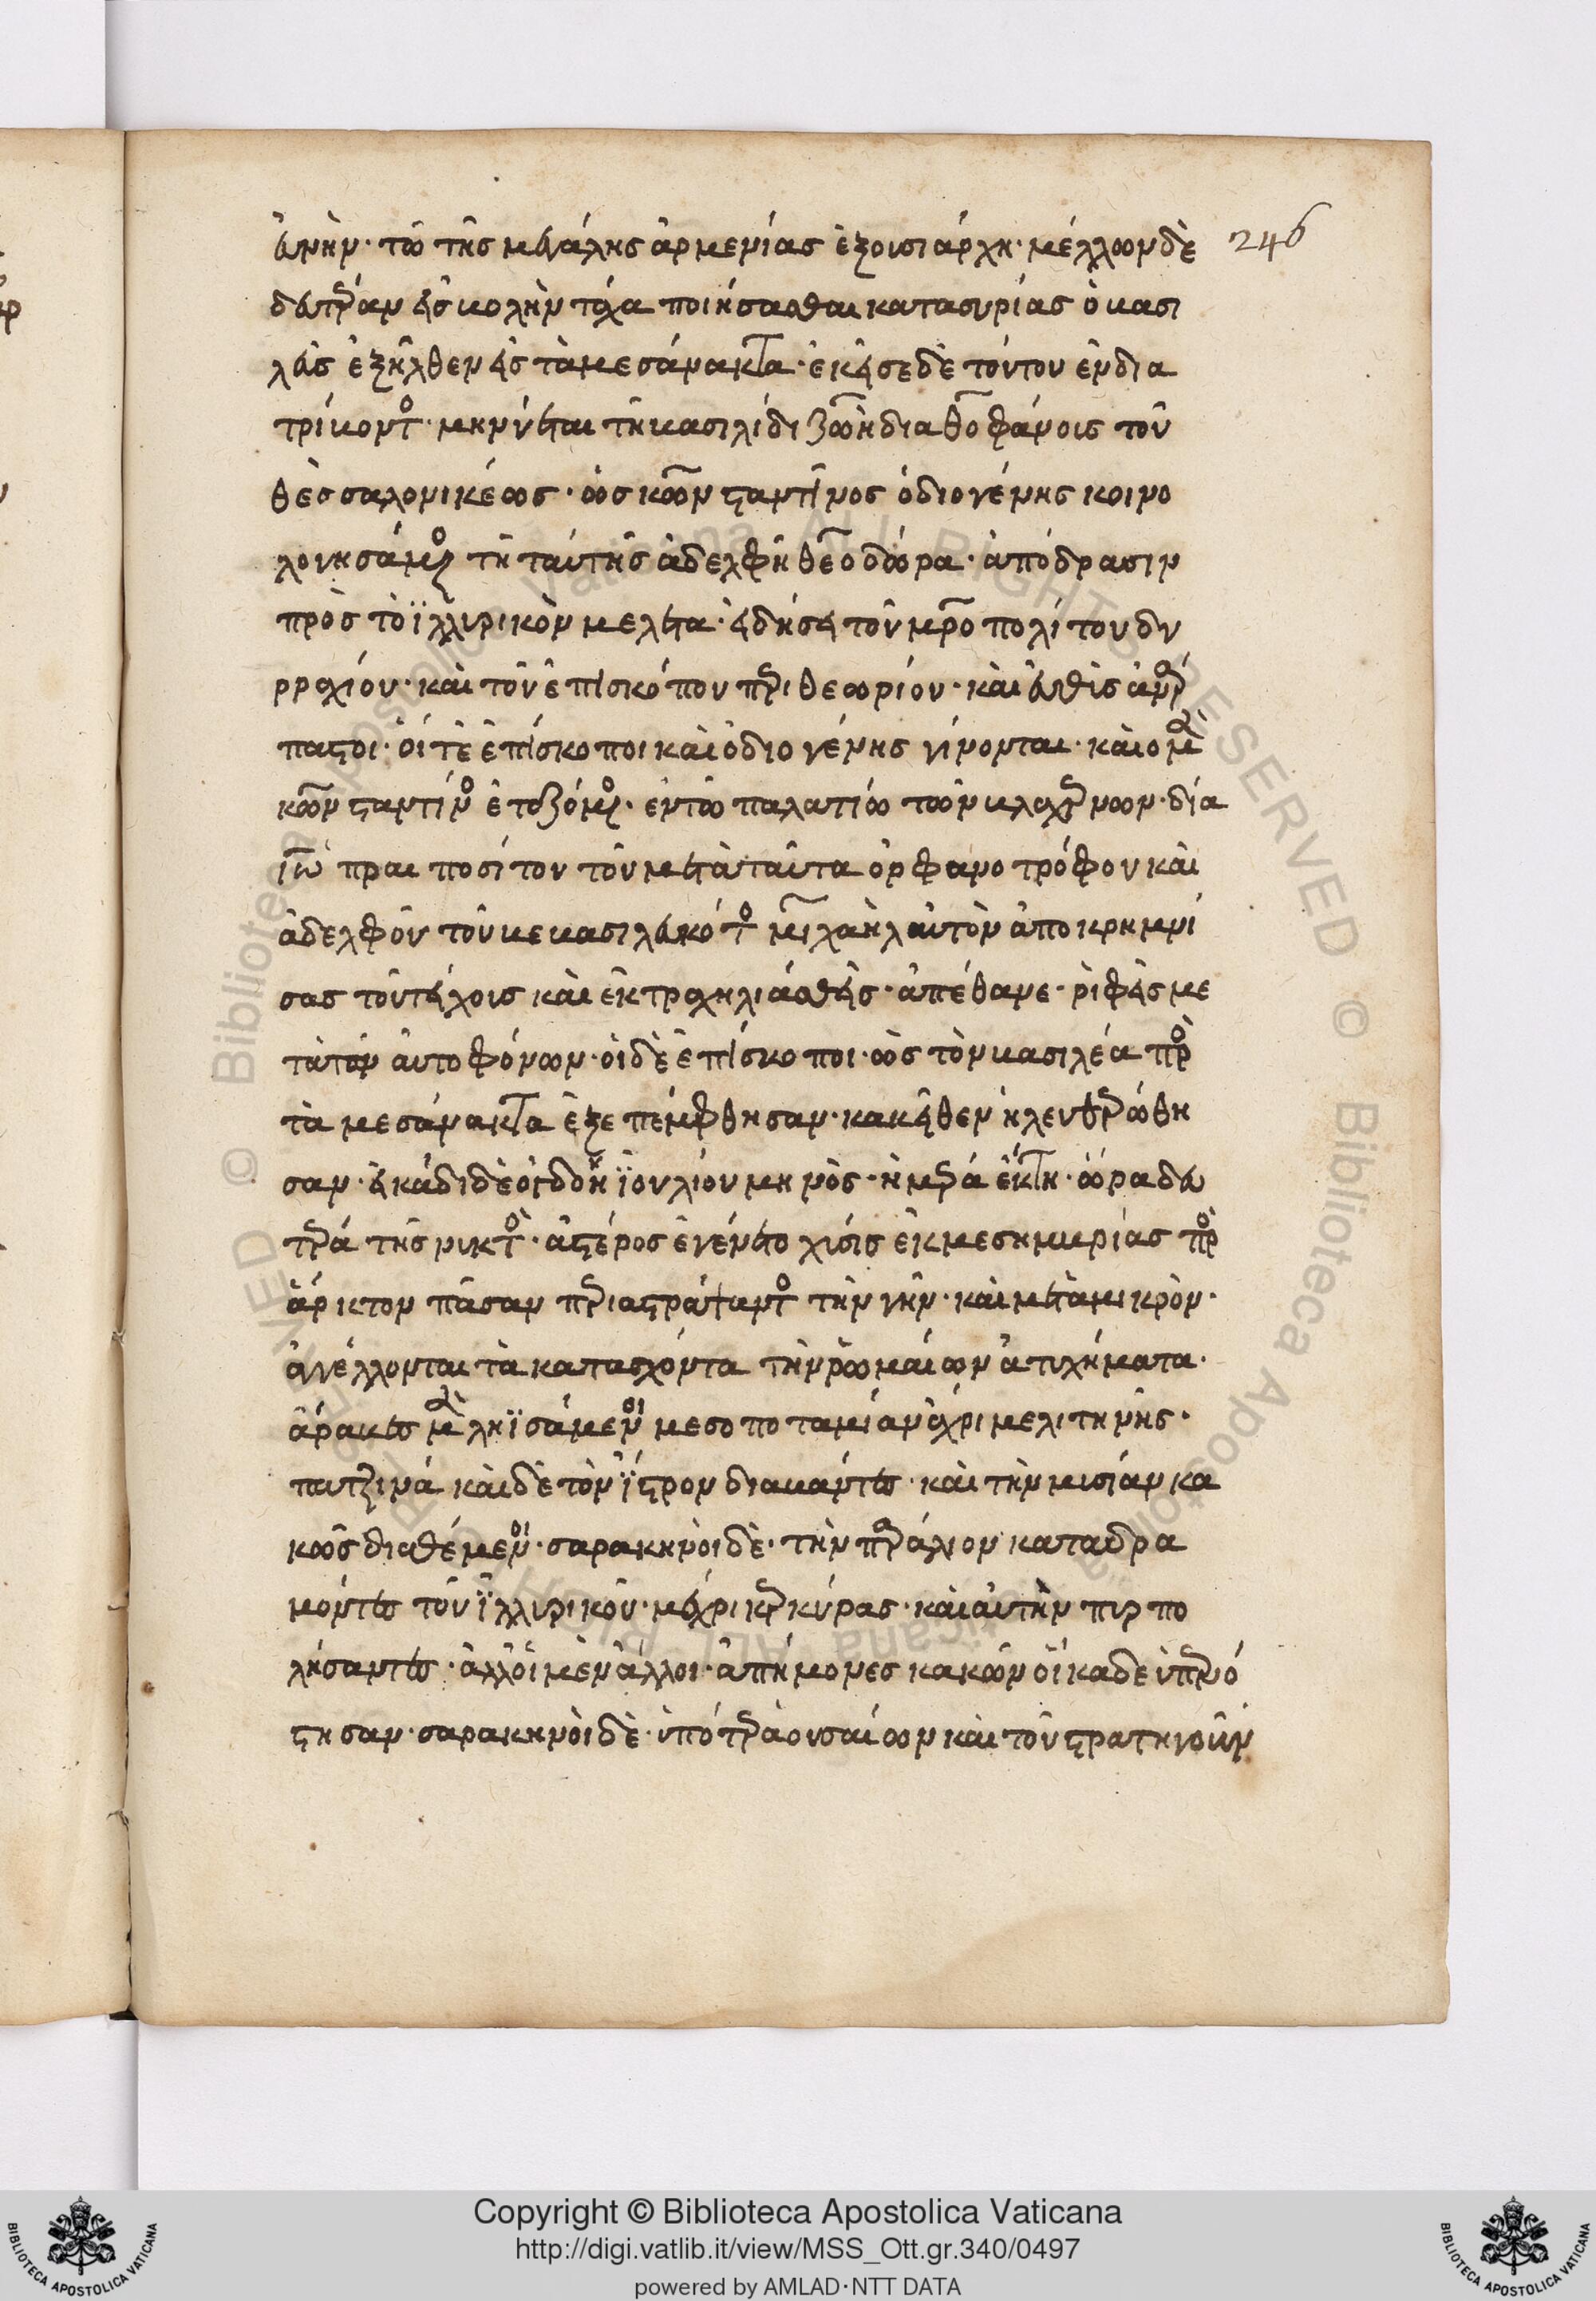 ἀνὴν· τῶ τῆς μεγάλης ἀρμενίας ἐξουσιάρχη· μέλλων δὲ
δευτέραν εἰσβολὴν τάχα ποιήσασθαι κατασυρίας ὁ βασι
λεὺς ἐξῆλθεν εἰς τὰ μεσάνακτα· ἐκεῖσε δὲ τούτου ἐνδια
τρίβοντος· μηνύεται τῆ βασιλίδι ζωῆ δια θεοφάνους τοῦ
θεσσαλονικέως· ὡς κωνσταντῖνος ὁ διογένης κοινο
λογησάμενος τῆ ταύτης ἀδελφῆ θεοδώρα· ἀπόδρασιν
πρὸς τὸ ἰλλυρικὸν μελετᾶ· εἰδήσει τοῦ μητροπολίτου δυ
ρραχίου· καὶ τοῦ ἐπισκόπου περιθεωρίου· καὶ εὐθὺς ἀνάρ
παστοι· οἵ τε ἐπίσκοποι καὶ ὁ διογένης γίνονται· καὶ ὁ μὲν
κωνσταντῖνος ἐταζόμενος· ἐν τῶ παλατίω τῶν βλαχερνῶν· διὰ
ἰωάννου πραιποσίτου τοῦ μετὰ ταῦτα ὀρφανοτρόφου καὶ
ἀδελφοῦ τοῦ βεβασιλευκότος μιχαὴλ αὑτὸν ἀποκρημνί
σας τοῦ τείχους καὶ ἐκτραχηλιασθεὶς· ἀπέθανε· ῥιφεὶς με
τὰ τῶν αὐτοφόνων· οἱ δὲ ἐπίσκοποι· ὡς τὸν βασιλέα πρὸς
τὰ μεσάνακτα ἐξεπέμφθησαν· κακεῖθεν ἠλευθερώθη
σαν· εἰκάδι δὲ ὀγδόη ἰουλίου μηνὸς· ἡμέρα ἕκτη· ὥρα δευ
τέρα τῆς νυκτὸς· ἀστέρος ἐγένετο χύσις ἐκ μεσημβρίας πρὸς
ἄρκτον πᾶσαν περιαστράψαντος τὴν γῆν· καὶ μετὰ μικρὸν·
ἀγγέλλονται τὰ κατασχόντα τὴν ῥωμαίων ἀτυχήματα·
ἄραβες μὲν ληϊσάμενοι μεσοποταμίαν ἄχρι μελιτηνῆς·
πατζινάκαι δὲ τὸν ἴστρον διαβάντες· καὶ τὴν μυσίαν κα
κῶς διαθέμενοι· σαρακηνοὶ δὲ· τὴν παράλιον καταδρα
μόντες τοῦ ἰλλυρικοῦ· μέχρι κερκύρας· καὶ αὐτὴν πυρπο
λήσαντες· ἀλλ' οἱ μὲν ἄλλοι· ἀπήμονες κακῶν οἴκαδε ὑπενό
στησαν· σαρακηνοὶ δὲ· ὑπό τε ῥαουσαίων καὶ τοῦ στρατηγοῦν
246
Copyright © Biblioteca Apostolica Vaticana
http://digi.vatlib.it/view/MSS_Ott.gr.340/0497
powered by AMLAD·NTT DATA